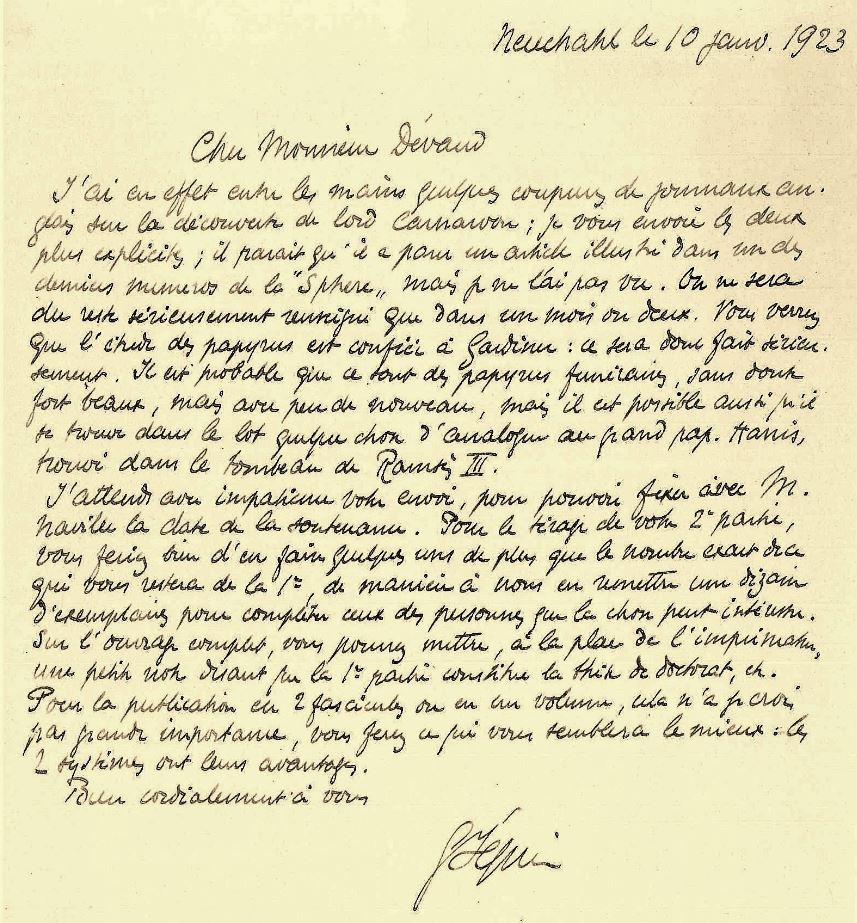 Neuchatel le 10 janv. 1923
Cher Monsieur Dévaud
J'ai en effet entre les mains quelques coupures de journaux an-
glais sur la découverte de lord Carnarvon ; je vous envoie les deux
plus explicites ; il parait qu'il a paru un article illustré dans un des
derniers numeros de la "Sphere„ mais je ne l'ai pas vu. On ne sera
du reste sérieusement renseigné que dans un mois ou deux. Vous verrez
que l'étude des papyrus est confiée à Gardiner : ce sera donc fait sérieu-
sement. Il est probable que ce sont des papyrus funéraires, sans doute
fort beaux, mais avec peu de nouveau, mais il est possible aussi qu'il
se trouve dans le lot quelque chose d'analogue au grand pap. Harris,
trouvé dans le tombeau de Ramsès III.
J'attends avec impatience votre envoi, pour pouvoir fixer avec M.
Naville la date de la soutenance. Pour le tirage de votre 2e partie,
vous feriez bien d'en faire quelques uns de plus que le nombre exact de ce
qui vous restera de la 1re, de manière à nous en remettre une dizaine
d'exemplaires pour compléter ceux des personnes que la chose peut intéresser.
Sur l'ouvrage complet, vous pourrez mettre, à la place de l'imprimatur,
une petite note disant que la 1re partie constitue la thèse de doctorat, etc.
Pour la publication en 2 fascicules ou en un volume, cela n'a je crois
pas grande importance, vous ferez ce qui vous semblera le mieux : les
2 systèmes ont leurs avantages.
Bien cordialement à vous
G Jéquier